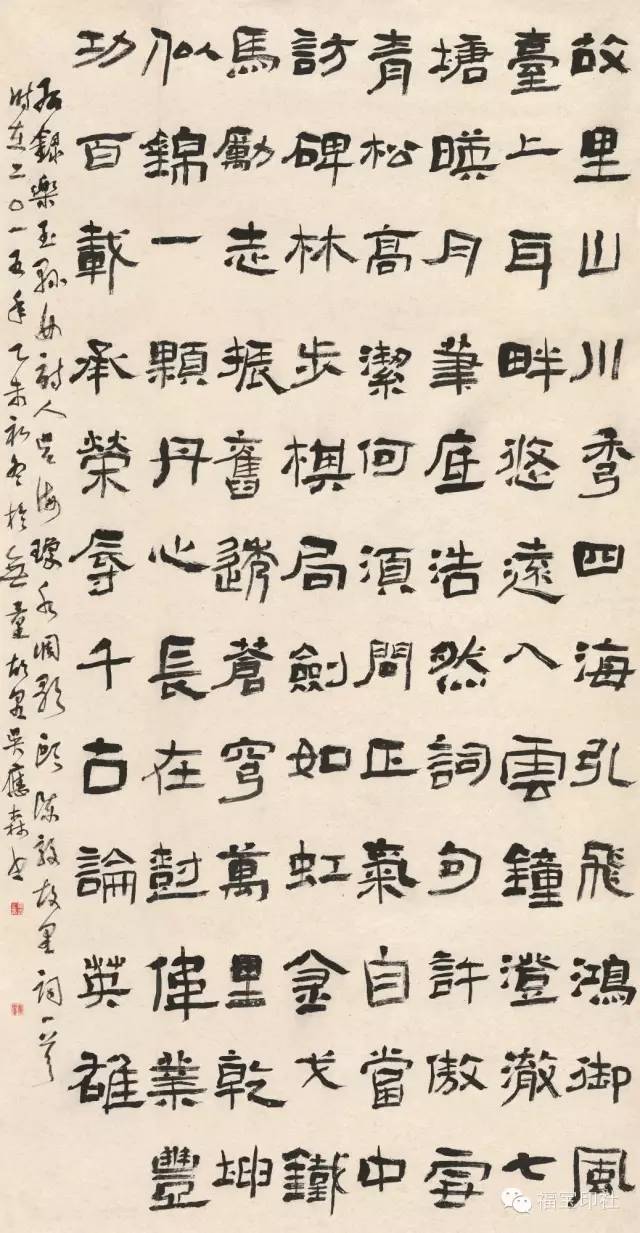 故里山川秀四海引飛鴻御風
臺上耳畔悠遠入雲鐘澄徹七
塘暎月筆底浩然詞句許傲雪
青松高潔何須問正氣自當中
訪碑林步棋局劍如虹金戈鐵
馬勵志振舊透蒼穹萬里乾坤
似錦一顆丹心長在尌偉業豐
功百載承榮辱千古論英雄
右錄樂至縣女詩人海瓊水調歌頭陳毅故里詞一首
時在二〇一五年乙未初冬於無量故里吳應森書
福宝印社